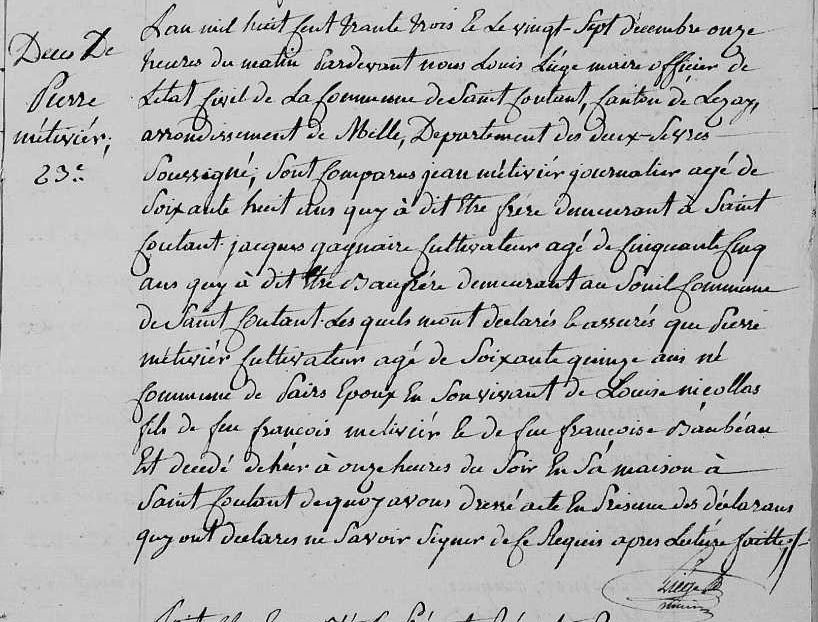 Deces De
Pierre
métiviér,
23e
L'an mil huit cent trante trois le Le vingt-Sept décembre onze
heures du matin Pardevant nous Louis Liége maire officier de
L'etat Civil de La Commune de Saint Coutant, Canton de Lezay,
arrondissement de Melle, Departement des deux-Sevres
Soussigné, Sont Comparus jean métiviér journalier agé de
Soixante huit ans quy à dit Etre frère demeurant à Saint
Coutant. jacques gagnaire Cultivateur agé de Cinquante Cinq
ans quy à dit Etre Baufrére demeurant au Commune
de Saint Coutant. Les quels mont declarés & assurés que Pierre
métiviér Cultivateur agé de Soixante quinze ans né
Commune de Pairs Epoux En Son vivant de Louise nicollas
fils de feu françois metiviér & de feu francoise Baubéau
Est decedé de hier à onze heures du Soir En Sa maison à
Saint Coutant de quoy avons dressé acte En Presence des déclarans
quy ont declarés ne Savoir Signer de Ce Requis apres Lecture faitte
Liége
maire